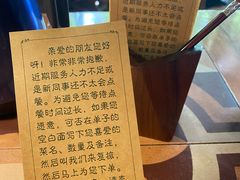 亲爱的朋友您好
呀！非常非常抱歉，
近期服务人力不足或
是新同事还不太会点
餐。为避免您等待点
餐时间过长，如果您
愿意，可否在单子的
空白面写下您喜爱的
菜名、数量及备注，
然后叫我们来复核，
然后马上为您下单。